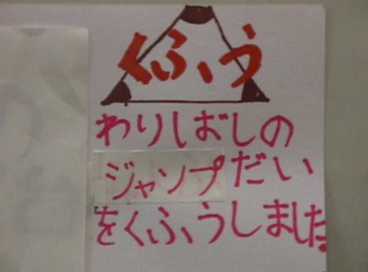 くふう
わりばしの
ジャンプだい
をくふうしました。